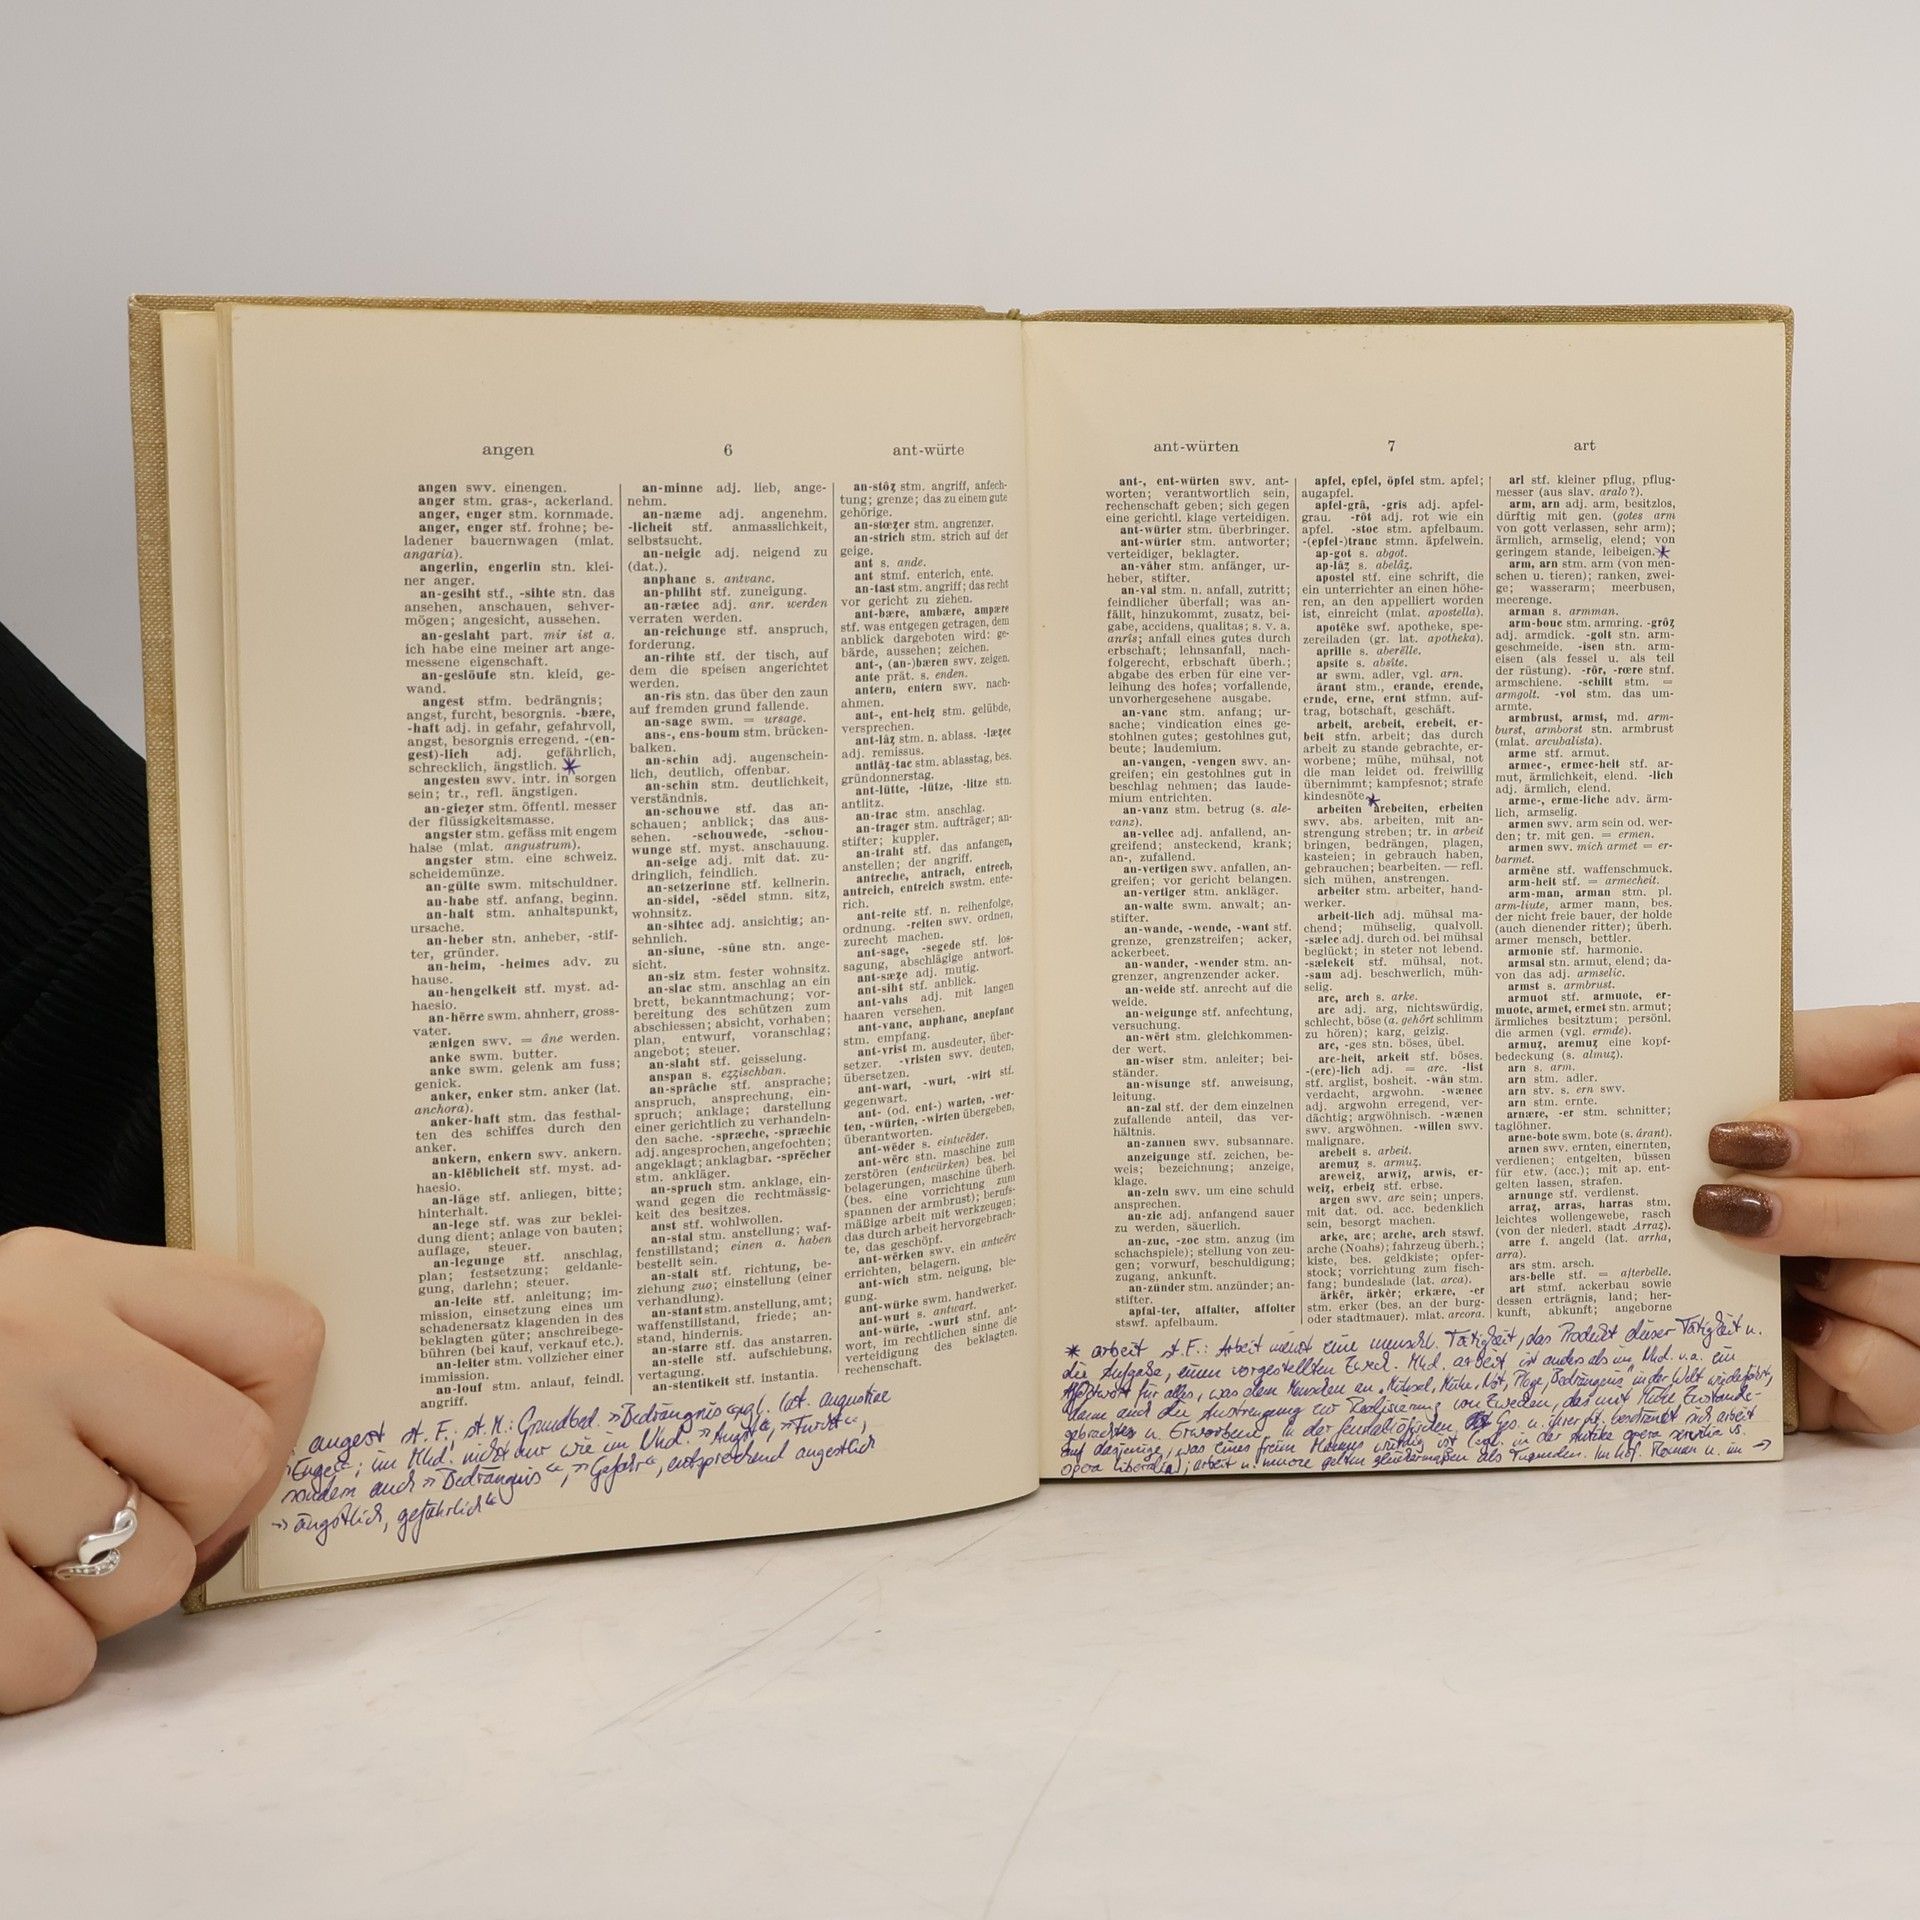 angen 6 ant-würte
angen swv. einengen.
anger stm. gras-, ackerland.
anger, enger stm. kornmade.
anger, enger stf. frohne; be-
ladener bauernwagen (mlat.
angaria).
angerlin, engerlin stn. klei-
ner anger.
an-gesiht stf., -sihte stn. das
ansehen, anschauen, sehver-
mögen; angesicht, aussehen.
an-geslaht part. mir ist a.
ich habe eine meiner art ange-
messene eigenschaft.
an-geslöufe stn. kleid, ge-
wand.
angest stfm. bedrängnis;
angst, furcht, besorgnis. -bære,
-haft adj. in gefahr, gefahrvoll,
angst, besorgnis erregend. -(en-
gest)-lich adj. gefährlich,
schrecklich, ängstlich. *
angesten swv. intr. in sorgen
sein; tr., refl. ängstigen.
an-giezer stm. öffentl. messer
der flüssigkeitsmasse.
angster stm. gefäss mit engem
halse (mlat. angustrum).
angster stm. eine schweiz.
scheidemünze.
an-gülte swm. mitschuldner.
an-habe stf. anfang, beginn.
an-halt stm. anhaltspunkt,
ursache.
an-heber stn. anheber, -stif-
ter, gründer.
an-heim, -heimes adv. zu
hause.
an-hengelkeit stf. myst. ad-
haesio.
an-hërre swm. ahnherr, gross-
vater.
ænigen swv. = âne werden.
anke swm. butter.
anke swm. gelenk am fuss;
genick.
anker, enker stm. anker (lat.
anchora).
anker-haft stm. das festhal-
ten des schiffes durch den
anker.
ankern, enkern swv. ankern.
an-klëblicheit stf. myst. ad-
haesio.
an-lâge stf. anliegen, bitte;
hinterhalt.
an-lege stf. was zur beklei-
dung dient; anlage von bauten;
auflage, steuer.
an-legunge stf. anschlag,
plan; festsetzung; geldanle-
gung, darlehn; steuer.
an-leite stf. anleitung; im-
mission, einsetzung eines um
schadenersatz klagenden in des
beklagten güter; anschreibege-
bühren (bei kauf, verkauf etc.).
an-leiter stm. vollzieher einer
immission.
an-louf stm. anlauf, feindl.
angriff.
an-minne adj. lieb, ange-
nehm.
an-næme adj. angenehm.
-licheit stf. anmasslichkeit,
selbstsucht.
an-neigic adj. neigend zu
(dat.).
anphanc s. antvanc.
an-phliht stf. zuneigung.
an-rætec adj. anr. werden
verraten werden.
an-reichunge stf. anspruch,
forderung.
an-rihte stf. der tisch, auf
dem die speisen angerichtet
werden.
an-ris stn. das über den zaun
auf fremden grund fallende.
an-sage swm. = ursage.
ans-, ens-boum stm. brücken-
balken.
an-schin adj. augenschein-
lich, deutlich, offenbar.
an-schin stm. deutlichkeit,
verständnis.
an-schouwe stf. das an-
schauen; anblick; das aus-
sehen. -schouwede, -schou-
wunge stf. myst. anschauung.
an-seige adj. mit dat. zu-
dringlich, feindlich.
an-setzerinne stf. kellnerin.
an-sidel, -sëdel stmn. sitz,
wohnsitz.
an-sihtec adj. ansichtig; an-
sehnlich.
an-siune, -sûne stn. ange-
sicht.
an-siz stm. fester wohnsitz.
an-slac stm. anschlag an ein
brett, bekanntmachung; vor-
bereitung des schützen zum
abschiessen; absicht, vorhaben;
plan, entwurf, voranschlag;
angebot; steuer.
an-slaht stf. geisselung.
anspan s. ezzischban.
an-sprâche stf. ansprache;
anspruch, ansprechung, ein-
spruch; anklage; darstellung
einer gerichtlich zu verhandeln-
den sache. -spræche, -spræchic
adj. angesprochen, angefochten;
angeklagt; anklagbar. -sprëcher
stm. ankläger.
an-spruch stm. anklage, ein-
wand gegen die rechtmässig-
keit des besitzes.
anst stf. wohlwollen.
an-stal stm. anstellung, waf-
fenstillstand; einen a. haben
bestellt sein.
an-stalt stf. richtung, be-
ziehung zuo; einstellung (einer
verhandlung).
an-stant stm. anstellung, amt;
waffenstillstand, friede; an-
stand, hindernis.
an-starre stf. das anstarren.
an-stelle stf. aufschiebung,
vertagung.
an-stentikeit stf. instantia.
an-stôz stm. angriff, anfech-
tung; grenze; das zu einem gute
gehörige.
an-stœzer stm. angrenzer.
an-strich stm. strich auf der
geige.
ant s. ande.
ant stmf. enterich, ente.
an-tast stm. angriff; das recht
vor gericht zu ziehen.
ant-bære, ambære, ampære
stf. was entgegen getragen, dem
anblick dargeboten wird: ge-
bärde, aussehen; zeichen.
ant-, (an-)bæren swv. zeigen.
ante prät. s. enden.
antern, entern swv. nach-
ahmen.
ant-, ent-heiz stm. gelübde,
versprechen.
ant-lâz stm. n. ablass. -læzec
adj. remissus.
antlâz-tac stm. ablasstag, bes.
gründonnerstag.
ant-lütte, -lütze, -litze stn.
antlitz.
an-trac stm. anschlag.
an-trager stm. aufträger; an-
stifter; kuppler.
an-traht stf. das anfangen,
anstellen; der angriff.
antreche, antrach, entrech,
antreich, entreich swstm. ente-
rich.
ant-reite stf. n. reihenfolge,
ordnung. -reiten swv. ordnen,
zurecht machen.
ant-sage, -segede stf. los-
sagung, abschlägige antwort.
ant-sæze adj. mutig.
ant-siht stf. anblick.
ant-vahs adj. mit langen
haaren versehen.
ant-vanc, anphanc, anepfanc
stm. empfang.
ant-vrist m. ausdeuter, über-
setzer. -vristen swv. deuten,
übersetzen.
ant-wart, -wurt, -wirt stf.
gegenwart.
ant- (od. ent-) warten, -wer-
ten, -würten, -wirten übergeben,
überantworten.
ant-wëder s. eintwëder.
ant-wërc stn. maschine zum
zerstören (entwürken) bes. bei
belagerungen, maschine überh.
(bes. eine vorrichtung zum
spannen der armbrust); berufs-
mäßige arbeit mit werkzeugen;
das durch arbeit hervorgebrach-
te, das geschöpf.
ant-wërken swv. ein antwërc
errichten, belagern.
ant-wich stm. neigung, bie-
gung.
ant-würke swm. handwerker.
ant-wurt s. antwart.
ant-würte, -wurt stnf. ant-
wort, im rechtlichen sinne die
verteidigung des beklagten,
rechenschaft.
angest st. F.; st. M.: Grundbed. »Bedrängnis« vgl. lat. angustiae
»Enge«; im Mhd. nicht nur wie im Nhd. »Angst«, »Furcht«,
sondern auch »Bedrängnis«, »Gefahr«, entsprechend angestlich
-> ängstlich, gefährlich«
ant-würten 7 art
ant-, ent-würten swv. ant-
worten; verantwortlich sein,
rechenschaft geben; sich gegen
eine gerichtl. klage verteidigen.
ant-würter stm. überbringer.
ant-würter stm. antworter;
verteidiger, beklagter.
an-vâher stm. anfänger, ur-
heber, stifter.
an-val stm. n. anfall, zutritt;
feindlicher überfall; was an-
fällt, hinzukommt, zusatz, bei-
gabe, accidens, qualitas; s. v. a.
anris; anfall eines gutes durch
erbschaft; lehnsanfall, nach-
folgerecht, erbschaft überh.;
abgabe des erben für eine ver-
leihung des hofes; vorfallende,
unvorhergesehene ausgabe.
an-vanc stm. anfang; ur-
sache; vindication eines ge-
stohlnen gutes; gestohlnes gut,
beute; laudemium.
an-vangen, -vengen swv. an-
greifen; ein gestohlnes gut in
beschlag nehmen; das laude-
mium entrichten.
an-vanz stm. betrug (s. ale-
vanz).
an-vellec adj. anfallend, an-
greifend; ansteckend, krank;
an-, zufallend.
an-vertigen swv. anfallen, an-
greifen; vor gericht belangen.
an-vertiger stm. ankläger.
an-walte swm. anwalt; an-
stifter.
an-wande, -wende, -want stf.
grenze, grenzstreifen; acker,
ackerbeet.
an-wander, -wender stm. an-
grenzer, angrenzender acker.
an-weide stf. anrecht auf die
weide.
an-weigunge stf. anfechtung,
versuchung.
an-wërt stm. gleichkommen-
der wert.
an-wiser stm. anleiter; bei-
ständer.
an-wisunge stf. anweisung,
leitung.
an-zal stf. der dem einzelnen
zufallende anteil, das ver-
hältnis.
an-zannen swv. subsannare.
anzeigunge stf. zeichen, be-
weis; bezeichnung; anzeige,
klage.
an-zeln swv. um eine schuld
ansprechen.
an-zic adj. anfangend sauer
zu werden, säuerlich.
an-zuc, -zoc stm. anzug (im
schachspiele); stellung von zeu-
gen; vorwurf, beschuldigung;
zugang, ankunft.
an-zünder stm. anzünder; an-
stifter.
apfal-ter, affalter, affolter
stswf. apfelbaum.
apfel, epfel, öpfel stm. apfel;
augapfel.
apfel-grâ, -gris adj. apfel-
grau. -rôt adj. rot wie ein
apfel. -stoc stm. apfelbaum.
-(epfel-)tranc stmn. äpfelwein.
ap-got s. abgot.
ap-lâz s. abelâz.
apostel stf. eine schrift, die
ein unterrichter an einen höhe-
ren, an den appelliert worden
ist, einreicht (mlat. apostella).
apotêke swf. apotheke, spe-
zereiladen (gr. lat. apotheka).
aprille s. aberëlle.
apsite s. absîte.
ar swm. adler, vgl. arn.
ârant stm., erande, erende,
ernde, erne, ernt stfmn. auf-
trag, botschaft, geschäft.
arbeit, arebeit, erebeit, er-
beit stfn. arbeit; das durch
arbeit zu stande gebrachte, er-
worbene; mühe, mühsal, not
die man leidet od. freiwillig
übernimmt; kampfesnot; strafe
kindesnöte. *
arbeiten arebeiten, erbeiten
swv. abs. arbeiten, mit an-
strengung streben; tr. in arbeit
bringen, bedrängen, plagen,
kasteien; in gebrauch haben,
gebrauchen; bearbeiten. — refl.
sich mühen, anstrengen.
arbeiter stm. arbeiter, hand-
werker.
arbeit-lich adj. mühsal ma-
chend; mühselig, qualvoll.
-sælec adj. durch od. bei mühsal
beglückt; in steter not lebend.
-sælekeit stf. mühsal, not.
-sam adj. beschwerlich, müh-
selig.
arc, arch s. arke.
arc adj. arg, nichtswürdig,
schlecht, böse (a. gehört schlimm
zu hören); karg, geizig.
arc, -ges stn. böses, übel.
arc-heit, arkeit stf. böses.
-(erc)-lich adj. = arc. -list
stf. arglist, bosheit. -wân stm.
verdacht, argwohn. -wænec
adj. argwohn erregend, ver-
dächtig; argwöhnisch. -wænen
swv. argwöhnen. -willen swv.
malignare.
arebeit s. arbeit.
aremuz s. armuz.
areweiz, arwiz, arwis, er-
weiz, erbeiz stf. erbse.
argen swv. arc sein; unpers.
mit dat. od. acc. bedenklich
sein, besorgt machen.
arke, arc; arche, arch stswf.
arche (Noahs); fahrzeug überh.;
bes. geldkiste; opfer-
stock; vorrichtung zum fisch-
fang; bundeslade (lat. arca).
ärkêr, ärkër; erkære, -er
stm. erker (bes. an der burg-
oder stadtmauer). mlat. arcora.
arl stf. kleiner pflug, pflug-
messer (aus slav. aralo?).
arm, arn adj. arm, besitzlos,
dürftig mit gen. (gotes arm
von gott verlassen, sehr arm);
ärmlich, armselig, elend; von
geringem stande, leibeigen. *
arm, arn stm. arm (von men-
schen u. tieren); ranken, zwei-
ge; wasserarm; meerbusen,
meerenge.
arman s. armman.
arm-bouc stm. armring. -grôz
adj. armdick. -golt stn. arm-
geschmeide. -isen stn. arm-
eisen (als fessel u. als teil
der rüstung). -rôr, -rœre stnf.
armschiene. -schilt stm. =
armgolt. -vol stm. das um-
armte.
armbrust, armst, md. arm-
burst, armborst stn. armbrust
(mlat. arcubalista).
arme stf. armut.
armec-, ermec-heit stf. ar-
mut, ärmlichkeit, elend. -lich
adj. ärmlich, elend.
arme-, erme-liche adv. ärm-
lich, armselig.
armen swv. arm sein od. wer-
den; tr. mit gen. = ermen.
armen swv. mich armet = er-
barmet.
armêne stf. waffenschmuck.
arm-heit stf. = armecheit.
arm-man, arman stm. pl.
arm-liute, armer mann, bes.
der nicht freie bauer, der holde
(auch dienender ritter); überh.
armer mensch, bettler.
armonie stf. harmonie.
armsal stn. armut, elend; da-
von das adj. armselic.
armst s. armbrust.
armuot stf. armuote, er-
muote, armet, ermet stn. armut;
ärmliches besitztum; persönl.
die armen (vgl. ermde).
armuz, aremuz eine kopf-
bedeckung (s. almuz).
arn s. arm.
arn stm. adler.
arn stv. s. ern swv.
arn stm. ernte.
arnære, -er stm. schnitter;
taglöhner.
arne-bote swm. bote (s. ârant).
arnen swv. ernten, einernten,
verdienen; entgelten, büssen
für etw. (acc.); mit ap. ent-
gelten lassen, strafen.
arnunge stf. verdienst.
arraz, arras, harras stm.
leichtes wollengewebe, rasch
(von der niederl. stadt Arraz).
arre f. angeld (lat. arrha,
arra).
ars stm. arsch.
ars-belle stf. = afterbelle.
art stmf. ackerbau sowie
dessen erträgnis, land; her-
kunft, abkunft; angeborne
* arbeit st.F.: Arbeit meint eine menschl. Tätigkeit, das Produkt dieser Tätigkeit u.
die Aufgabe, einen vorgestellten Zweck. Mhd. arbeit ist anders als im Nhd. v.a. ein
für alles, was dem Menschen an "Mühsal, Mühe, Not, Plage, Bedrängnis" in der Welt wiederfährt,
dann auch die Anstrengung zur Realisierung von Zwecken, das mit Mühe Zustande-
gebrachte u. Erworbene. In der feudalhöfischen Ges. u. ihrer Lit. beschränkt sich arbeit
auf dasjenige, was eines freien Mannes würdig ist (vgl. in der Antike opera servilia vs.
opera liberalia); arbeit u. muoze gelten gleichermaßen als Tugenden. Im höf. Roman u. im ->